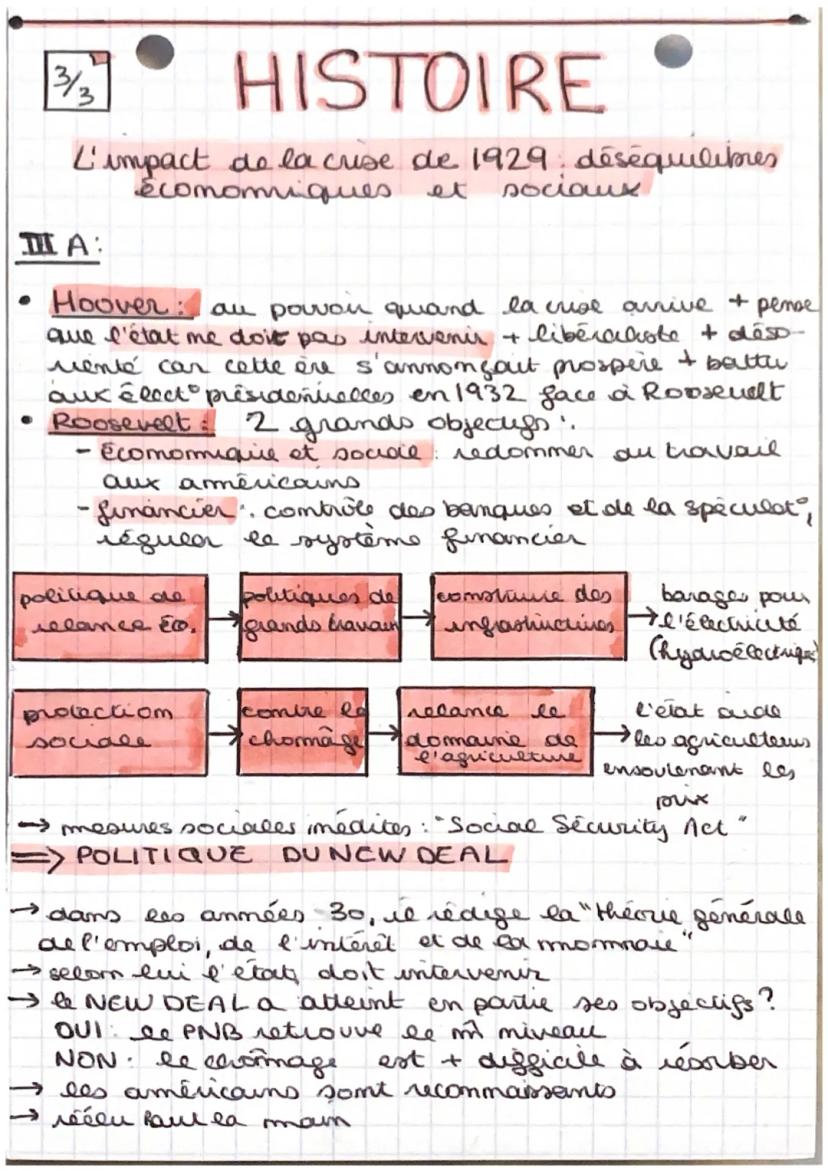 3/3
HISTOIRE
L'impact de la crise de 1929 : déséquilibres
économiques et sociaux
III A :
• Hoover : au pouvoir quand la crise arrive + pense
que l'état ne doit pas intervenir + libéraliste + déso-
rienté car cette ère s'annonçait prospère + battu
aux élect° présidentielles en 1932 face à Roosevelt
• Roosevelt : 2 grands objectifs :
- Économique et sociale : redonner du travail
aux américains
- financier : contrôle des banques et de la spéculat°,
réguler le système financier
politique de relance éco. → politiques de grands travaux → construire des infrastructures → barages pour l'électricité (hydroélectrique)
protection sociale → contre le chômage → relance le domaine de l'agriculture → l'état aide les agriculteurs en soutenant les prix
→ mesures sociales inédites : "Social Sécurity Act"
=> POLITIQUE DU NEW DEAL
→ dans les années 30, il rédige la "théorie générale
de l'emploi, de l'intérêt et de la monnaie"
→ selon lui l'état doit intervenir
→ le NEW DEAL a atteint en partie ses objectifs ?
OUI : le PNB retrouve le m̂ niveau
NON : le chômage est + difficile à résorber
→ les américains sont reconnaissants
→ réélu haut la main